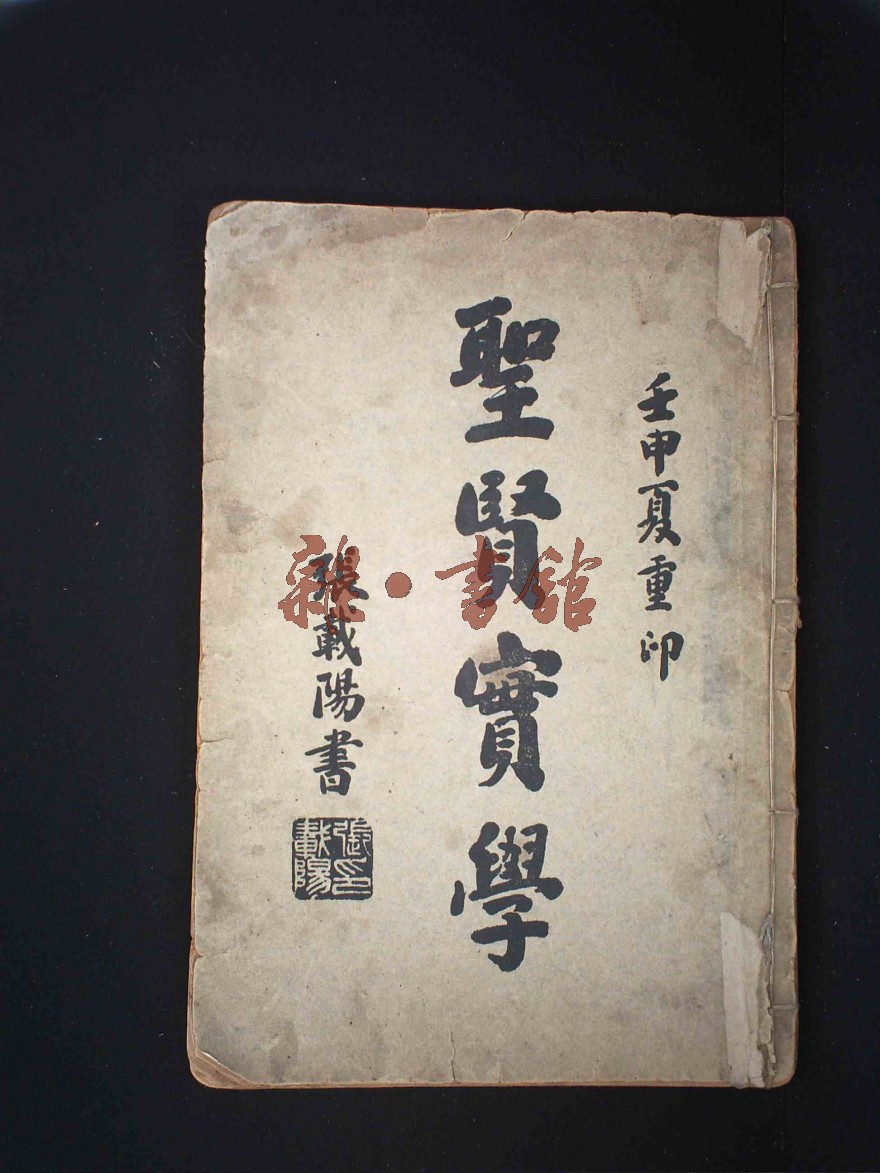 壬申夏重印
聖賢實學
張載陽書
張印載陽
雜·書館